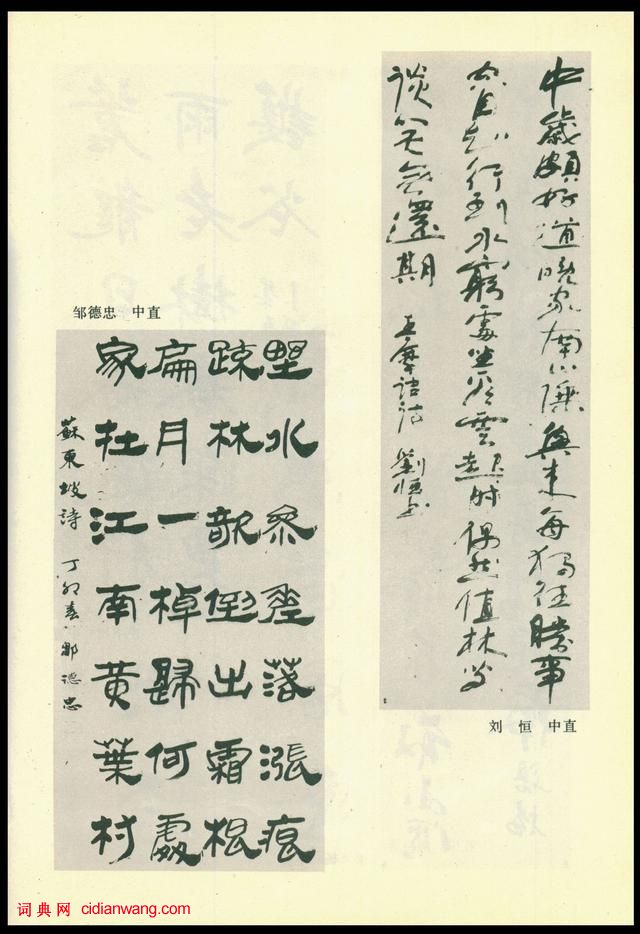 中歲頗好道晚家南山陲興來每獨往勝事
空自知行到水窮處坐看雲起時偶然值林叟
談笑無還期 王摩詰詩 劉恒書
刘 恒 中直
邹德忠 中直
野水參差落漲痕
疎林欹倒出霜根
扁舟一棹歸何處
家在江南黄葉村
蘇東坡詩 丁卯春 鄒德忠
词典网 cidianwang.com